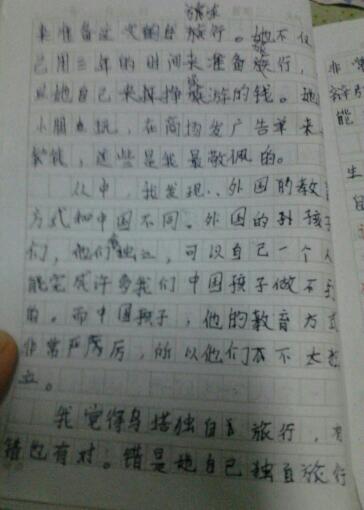 来准备这次的自旅行。她不仅
己用三年的时间来准备旅行,
以她自己来挣旅游的钱。她
小朋友玩,在商场发广告单来
钱,这些是我最敬佩的。
从中,我发现..外国的教
方式和中国不同。外国的孩子
们,他们独立,可以自己一个人
能完成许多我们中国孩子做不到
的。而中国孩子,他的教育方式
非常严厉,所以他们不太独
立。
我觉得乌塔独自旅行,有
错也有对。错是她自己独自旅行
非常
能
生